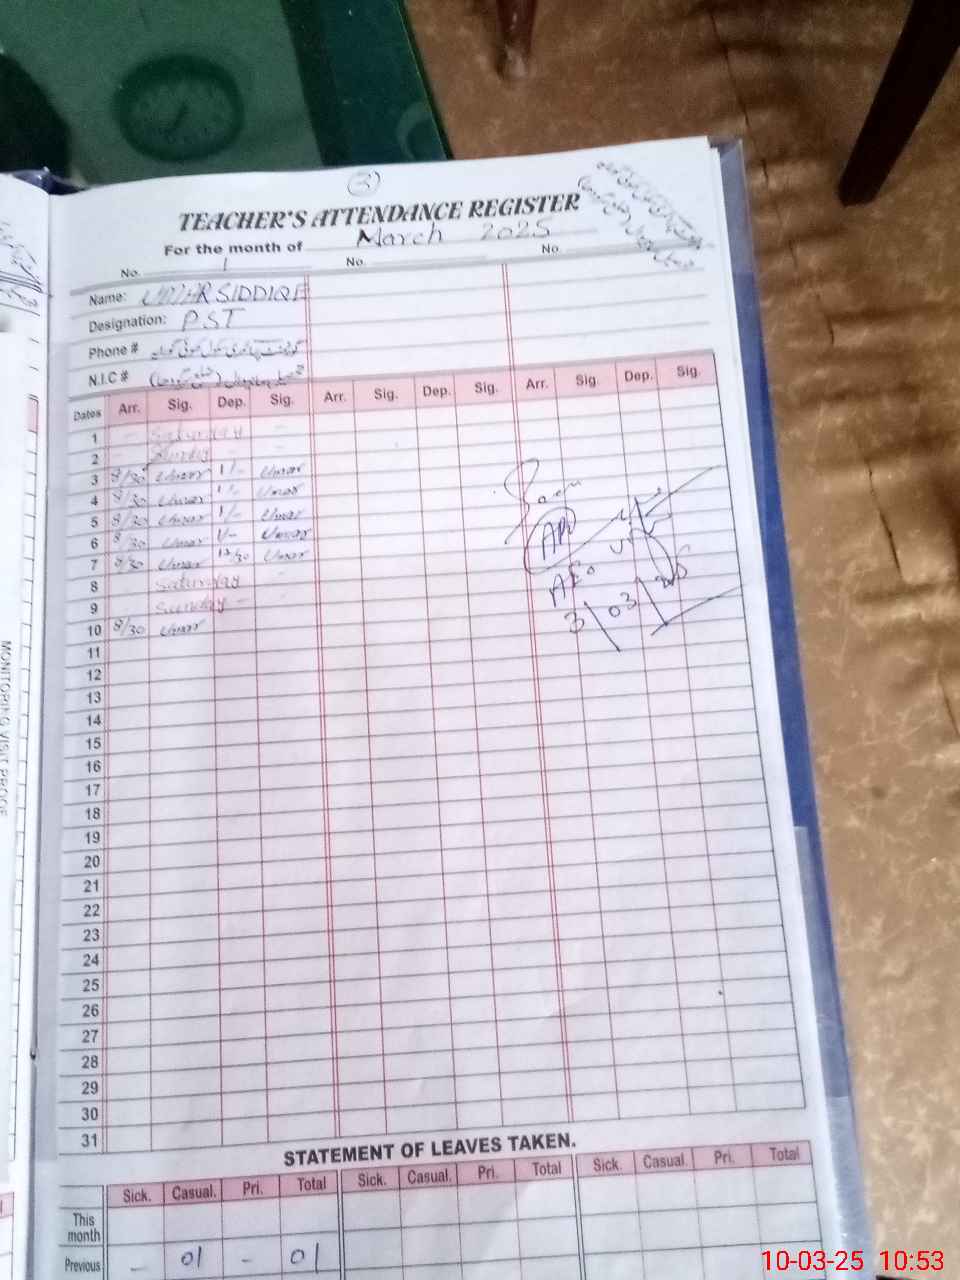 (3)
TEACHER'S ATTENDANCE REGISTER
For the month of March 2025
No. 1 No. No.
Name: UMAR SIDDIQE
Designation: PST
Phone #
N.I.C #
Dates Arr. Sig. Dep. Sig. Arr. Sig. Dep. Sig. Arr. Sig. Dep. Sig.
1 - Saturday -
2 - Sunday - -
3 8/30 Umar 1/- Umar
4 8/30 Umar 1/- Umar
5 8/30 Umar 1/- Umar
6 8/30 Umar 1/- Umar
7 8/30 Umar 12/30 Umar
8 - Saturday -
9 - Sunday - -
10 8/30 Umar
AEO
3 03
11
12
13
14
15
16
17
18
19
20
21
22
23
24
25
26
27
28
29
30
31
STATEMENT OF LEAVES TAKEN.
Sick. Casual. Pri. Total Sick. Casual. Pri. Total Sick. Casual. Pri. Total
This month
Previous - 01 - 01
MONITORING VISIT
10-03-25 10:53